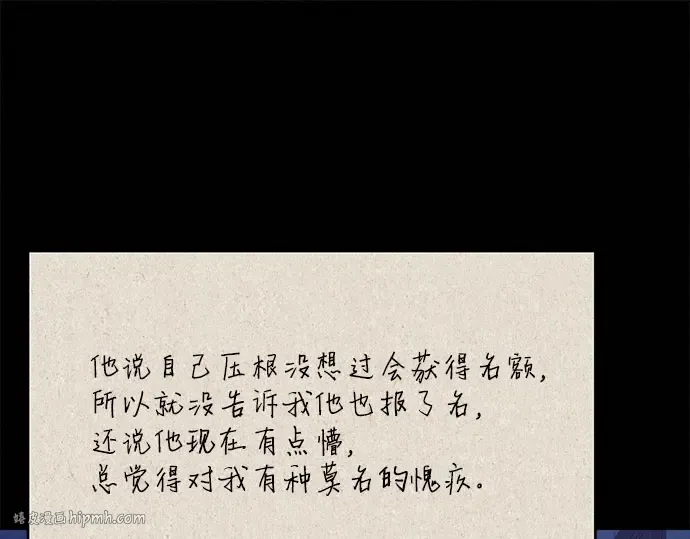 他说自己压根没想过会获得名额,
所以就没告诉我他也报了名,
还说他现在有点懵,
总觉得对我有种莫名的愧疚。
嬉皮漫画hipmh.com